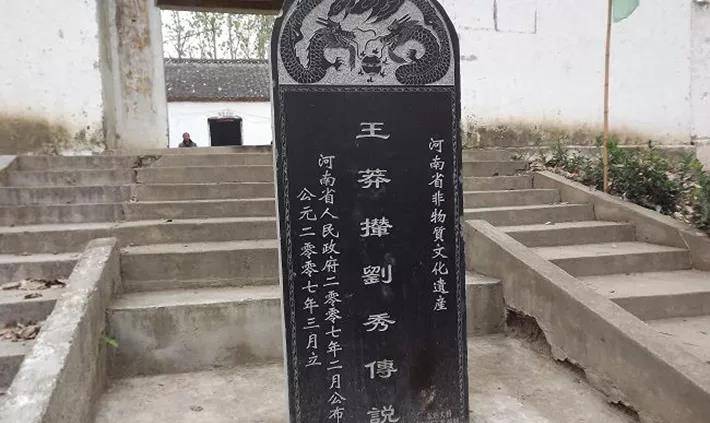 河南省非物質文化遺産
王莽攆劉秀傳説
河南省人民政府二零零七年二月公布
公元二零零七年三月立